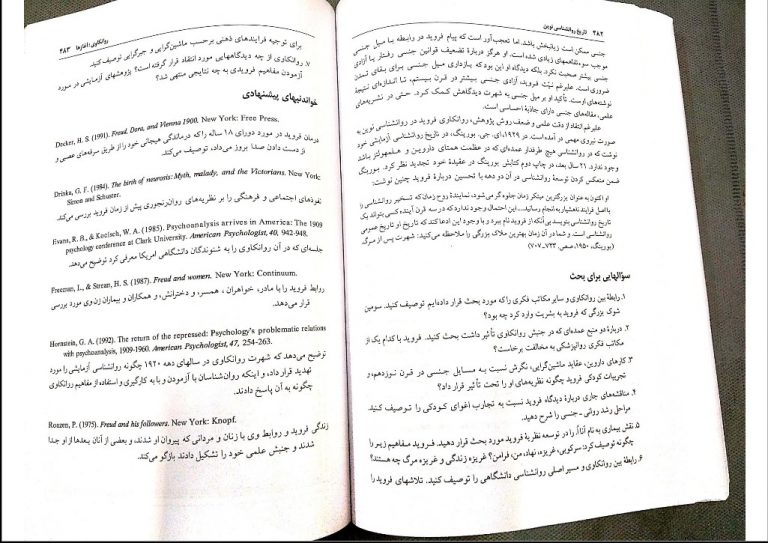 ۴۸۲ تاریخ روانشناسی نوین
جنسی ممکن است زیانبخش باشد. اما تعجب‌آور است که پیام فروید در رابطه با میل جنسی
موجب سوءتفاهمهای زیادی شده است. او هرگز دربارهٔ تضعیف قوانین جنسی رفتار یا آزادی
جنسی بیشتر صحبت نکرد. بلکه دیدگاه او این بود که بازداری میل جنسی برای بقای تمدن
ضروری است. علیرغم نیّت فروید، آزادی جنسی بیشتر در قرن بیستم، تا اندازه‌ای نتیجهٔ
نوشته‌های اوست. تأکید او بر میل جنسی به شهرت دیدگاهش کمک کرد. حتی در نشریه‌های
علمی، مقاله‌های جنسی دارای جاذبهٔ احساسی است.
علیرغم انتقاد از دقت علمی و ضعف روش پژوهش، روانکاوی فروید در روانشناسی نوین به
صورت نیروی مهمی در آمده است. در ۱۹۲۹، ای. جی. بورینگ، در تاریخ روانشناسی آزمایشی خود
نوشت که در روانشناسی هیچ طرفدار عمده‌ای که در عظمت همتای داروین و هلمهولتز باشد
وجود ندارد. ۲۱ سال بعد، در چاپ دوم کتابش بورینگ در عقیدهٔ خود تجدید نظر کرد. بورینگ
ضمن منعکس کردن توسعهٔ روانشناسی در آن دو دهه با تحسین دربارهٔ فروید چنین نوشت:
او اکنون به عنوان بزرگترین مبتکر زمان جلوه‌گر می‌شود، نمایندهٔ روح زمان که تسخیر روانشناسی را
با اصل فرایند ناهشیار به انجام رسانید... این احتمال وجود ندارد که در سه قرن آینده کسی بتواند یک
تاریخ روانشناسی بنویسد بی‌آنکه از فروید نام ببرد و با وجود این ادعا کند که تاریخ او تاریخ عمومی
روانشناسی است. و شما در آن زمان بهترین ملاک بزرگی را ملاحظه می‌کنید: شهرت پس از مرگ.
(بورینگ، ۱۹۵۰، صص. ۷۲۳–۷۰۷)
سؤالهایی برای بحث
۱. رابطهٔ بین روانکاوی و سایر مکاتب فکری را که مورد بحث قرار داده‌ایم توصیف کنید. سومین
شوک بزرگی که فروید به بشریت وارد کرد چه بود؟
۲. دربارهٔ دو منبع عمده‌ای که در جنبش روانکاوی تأثیر داشت بحث کنید. فروید با کدام یک از
مکاتب فکری روانپزشکی به مخالفت برخاست؟
۳. کارهای داروین، عقاید ماشین‌گرایی، نگرش نسبت به مسایل جنسی در قرن نوزدهم، و
تجربیات کودکی فروید چگونه نظریه‌های او را تحت تأثیر قرار داد؟
۴. مناقشه‌های جاری دربارهٔ دیدگاه فروید نسبت به تجارب اغوای کودکی را توصیف کنید.
مراحل رشد روانی-جنسی را شرح دهید.
۵. نقش بیماری به نام آنا اُ. را در توسعه نظریهٔ فروید مورد بحث قرار دهید. فروید مفاهیم زیر را
چگونه توصیف کرد: سرکوبی، غریزه، نهاد، من، فرامن؟ غریزه زندگی و غریزه مرگ چه هستند؟
۶. رابطهٔ بین روانکاوی و مسیر اصلی روانشناسی دانشگاهی را توصیف کنید. تلاشهای فروید را
روانکاوی: آغازها ۴۸۳
برای توجیه فرایندهای ذهنی برحسب ماشین‌گرایی و جبرگرایی توصیف کنید.
۷. روانکاوی از چه دیدگاههایی مورد انتقاد قرار گرفته است؟ پژوهشهای آزمایشی در مورد
آزمودن مفاهیم فرویدی به چه نتایجی منتهی شد؟
خواندنیهای پیشنهادی
Decker, H. S. (1991). Freud, Dora, and Vienna 1900. New York: Free Press.
درمان فروید در مورد دورای ۱۸ ساله را که درماندگی هیجانی خود را از طریق سرفه‌های عصبی و
از دست دادن صدا بروز می‌داد، توصیف می‌کند.
Drinka, G. F. (1984). The birth of neurosis: Myth, malady, and the Victorians. New York:
Simon and Schuster.
نفوذهای اجتماعی و فرهنگی را بر نظریه‌های روان‌رنجوری پیش از زمان فروید بررسی می‌کند.
Evans, R. B., & Koelsch, W. A. (1985). Psychoanalysis arrives in America: The 1909
psychology conference at Clark University. American Psychologist, 40, 942-948.
جلسه‌ای که در آن روانکاوی را به شنوندگان دانشگاهی امریکا معرفی کرد توضیح می‌دهد.
Freeman, L., & Strean, H. S. (1987). Freud and women. New York: Continuum.
روابط فروید را با مادر، خواهران، همسر، و دخترانش، و همکاران و بیماران زن وی مورد بررسی
قرار می‌دهد.
Hornstein, G. A. (1992). The return of the repressed: Psychology's problematic relations
with psychoanalysis, 1909-1960. American Psychologist, 47, 254-263.
توضیح می‌دهد که شهرت روانکاوی در سالهای دهه ۱۹۲۰ چگونه روانشناسی آزمایشی را مورد
تهدید قرار داد، و اینکه روان‌شناسان با آزمودن و با به کارگیری و استفاده از مفاهیم روانکاوی
چگونه به آن پاسخ دادند.
Roazen, P. (1975). Freud and his followers. New York: Knopf.
زندگی فروید و روابط وی با زنان و مردانی که پیروان او شدند، و بعضی از آنان بعدها از او جدا
شدند و جنبش علمی خود را تشکیل دادند بازگو می‌کند.